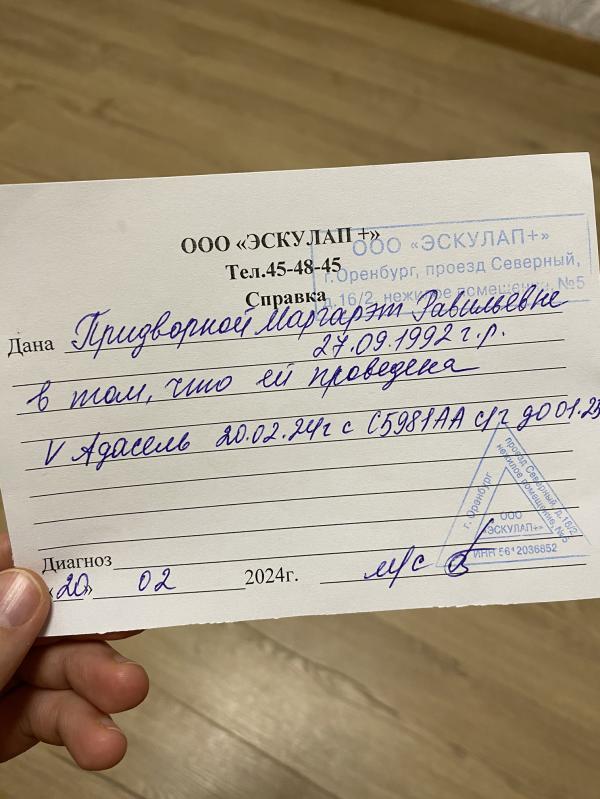 ООО «ЭСКУЛАП +»
Тел.45-48-45
Справка
ООО «ЭСКУЛАП+»
г.Оренбург, проезд Северный,
д.16/2, нежилое помещение, №5
Дана Придворной Маргарэт Равильевне
27.09.1992 г.р.
в том, что ей проведена
V Адасель 20.02.24г с C5981AA с/г до 01.25
г. Оренбург
проезд Северный, д.16/2
нежилое помещение, №5
ООО
«ЭСКУЛАП+»
ИНН 5612036852
Диагноз
«20» 02 2024г. м/с